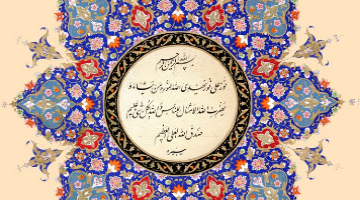 بسم الله الرحمن الرحیم
نور علی نور یهدی الله لنوره من یشاء و
یضرب الله الامثال للناس و الله بکل شیء علیم
صدق الله العلی العظیم